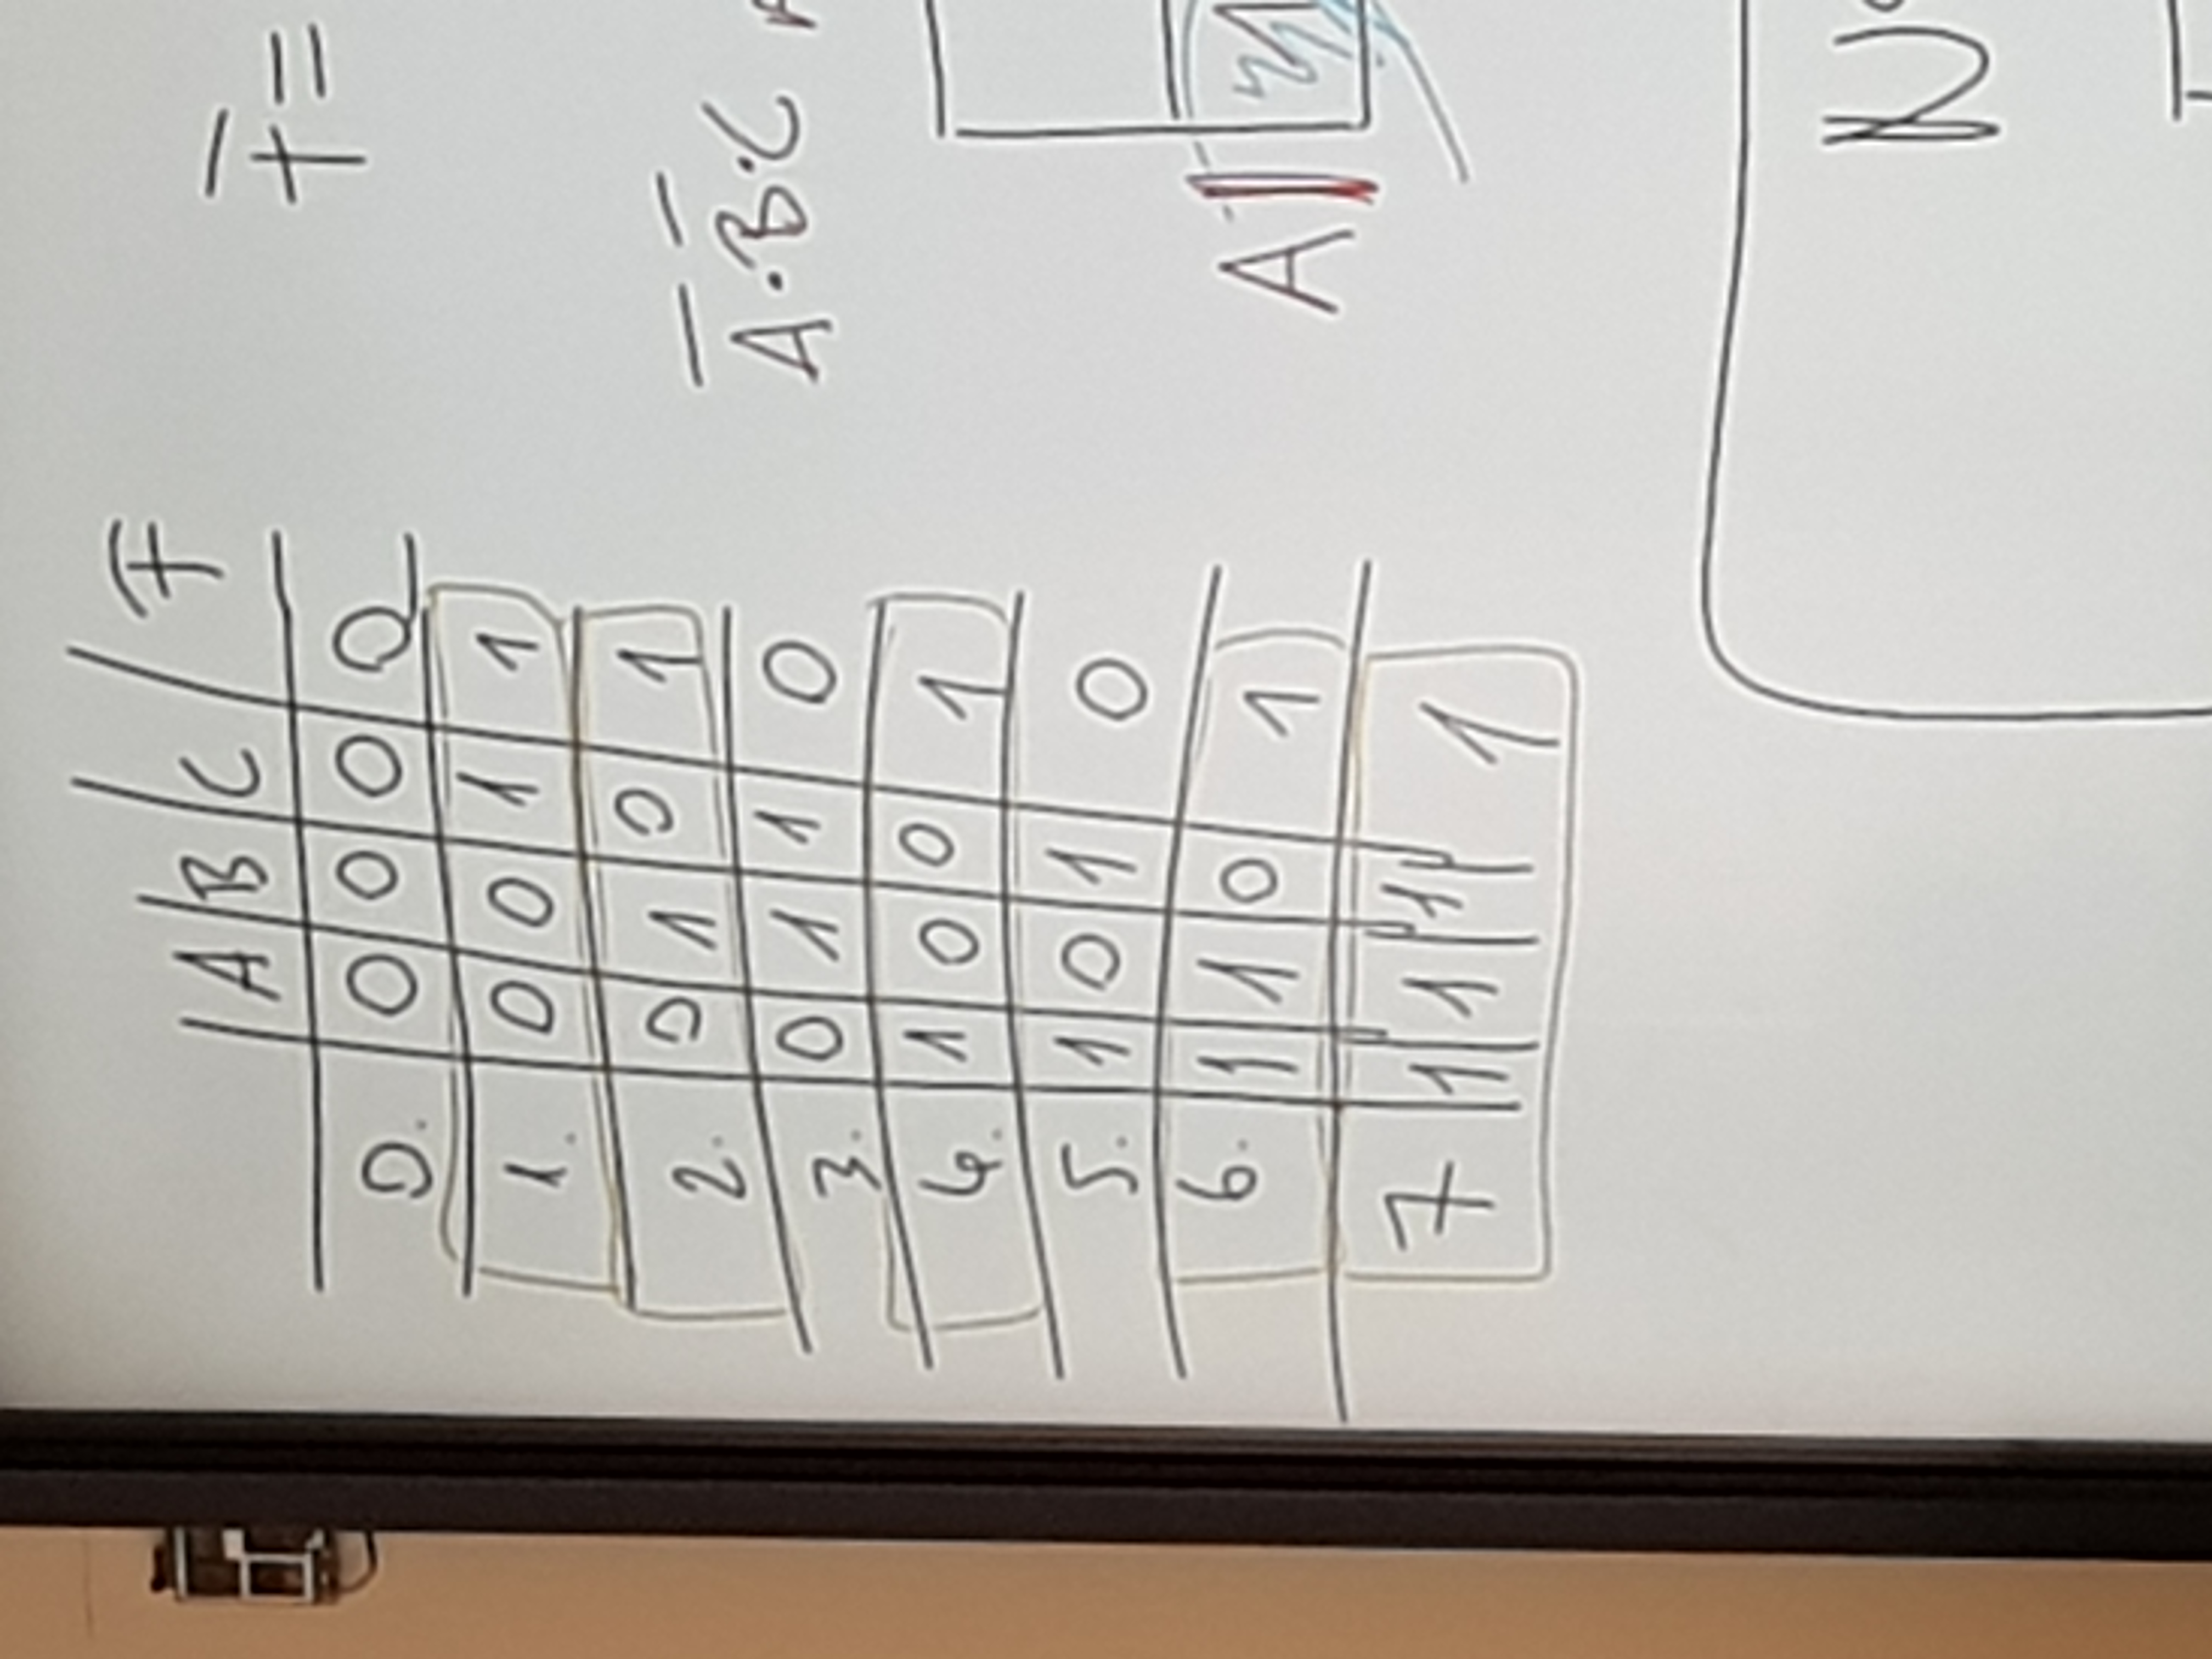 A B C F
0. 0 0 0 0
1. 0 0 1 1
2. 0 1 0 1
3. 0 1 1 0
4. 1 0 0 1
5. 1 0 1 0
6. 1 1 0 1
7 1 1 1 1
F=
A̅·B̅·C
A
1